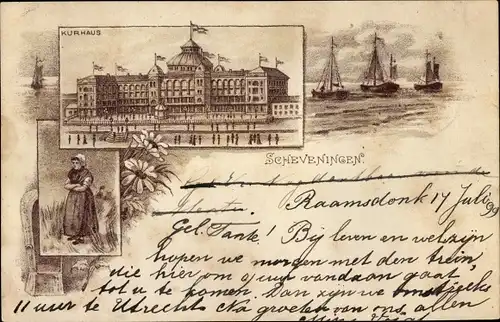 KURHAUS
SCHEVENINGEN.
Raamsdonk 17 Juli 99
Gel. Tante! Bij leven en welzijn
hopen we morgen met den trein
die hier om 9 uur vandaan gaat
tot u te komen. Dan zijn we
11 uur te Utrecht. Na groeten van ons allen